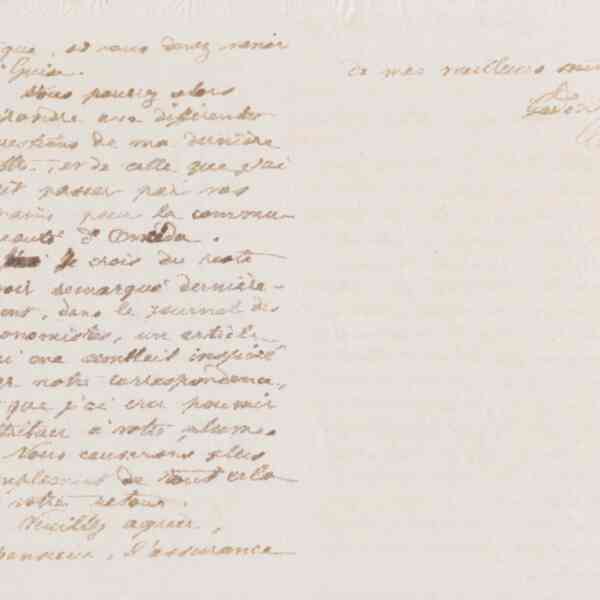 que, et vous devez venir
Guise.
Vous pourrez alors
répondre aux différentes
questions de ma dernière
et de celle que j'ai
fait passer par vos
mains pour la commu-
nauté d'Oneida.
Je crois du reste
avoir remarqué dernière-
ment, dans le Journal des
Économistes, un article
qui me semblait inspiré
par notre correspondance,
que j'ai cru pouvoir
attribuer à votre plume.
Nous causerons plus
amplement de tout cela
à votre retour.
Veuillez agréer,
Monsieur, l'assurance
de mes meilleurs